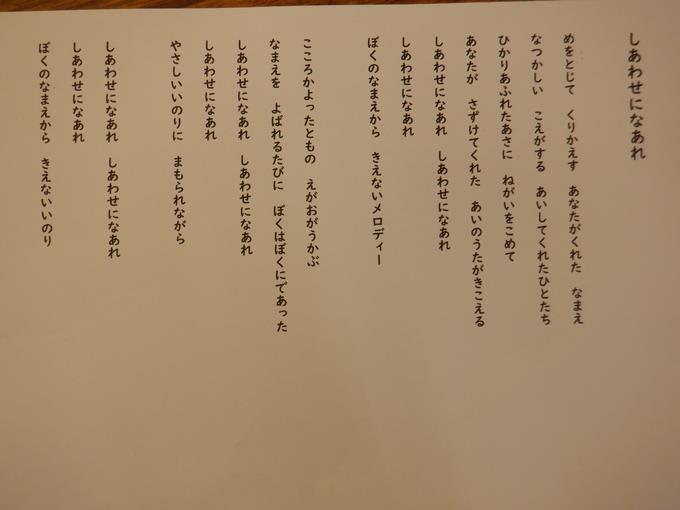 しあわせになあれ
めをとじて　くりかえす　あなたがくれた　なまえ
なつかしい　こえがする　あいしてくれたひとたち
ひかりあふれたあさに　ねがいをこめて
あなたが　さずけてくれた　あいのうたがきこえる
しあわせになあれ　しあわせになあれ
しあわせになあれ
ぼくのなまえから　きえないメロディー
こころかよったともの　えがおがうかぶ
なまえを　よばれるたびに　ぼくはぼくにであった
しあわせになあれ　しあわせになあれ
しあわせになあれ
やさしいいのりに　まもられながら
しあわせになあれ　しあわせになあれ
しあわせになあれ
ぼくのなまえから　きえないいのり